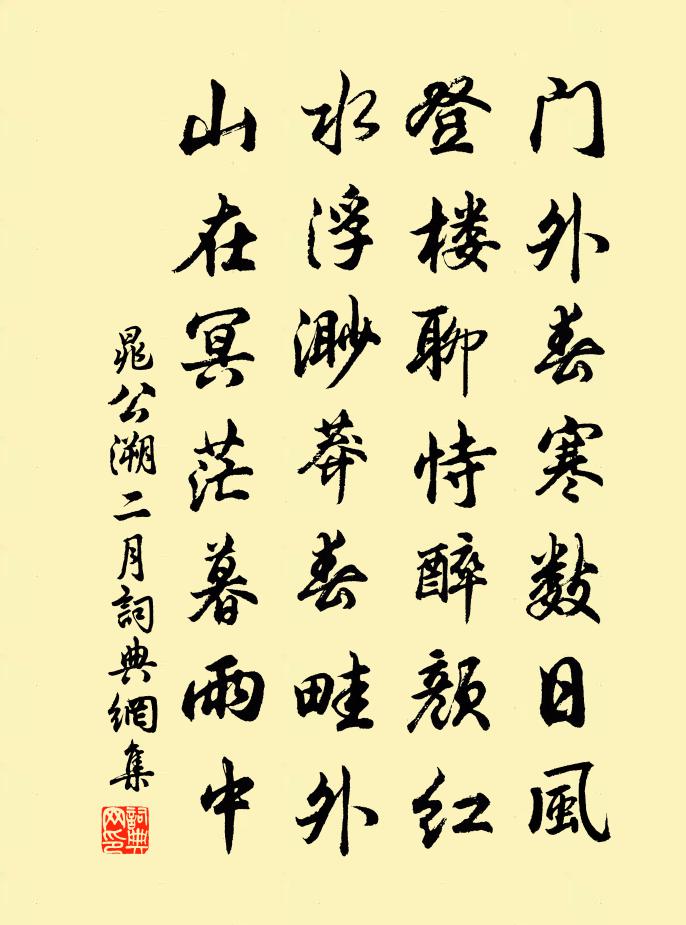 门外春寒数日風
登楼聊恃醉颜红
水浮渺莽春畦外
山在冥茫暮雨中
晁公溯二月詞典網集
詞典網印